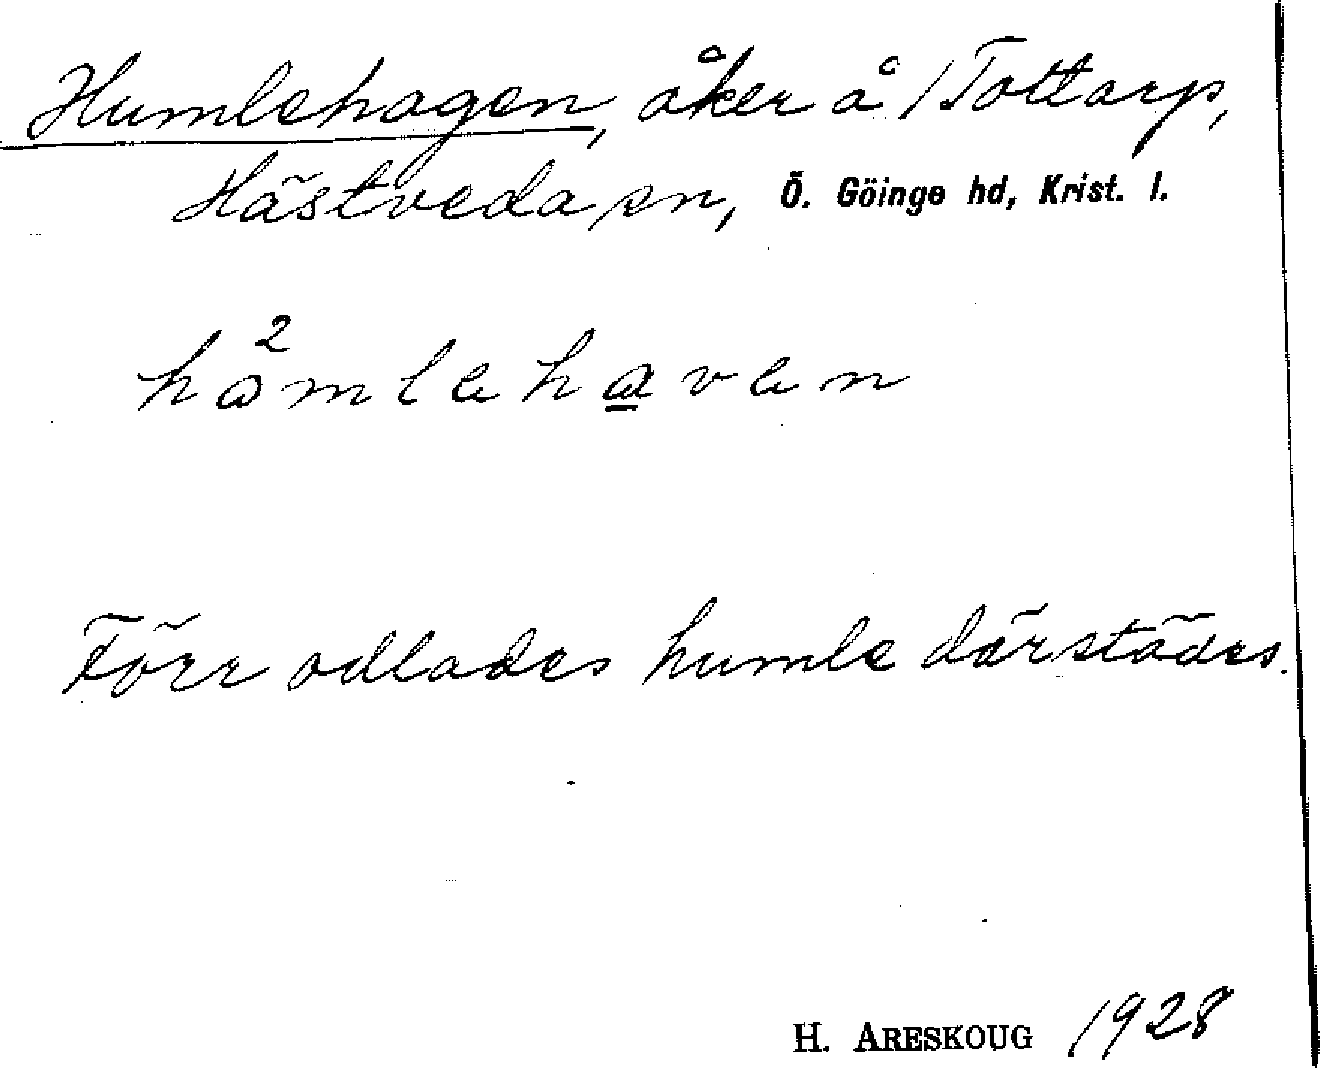 Humlehagen, åker å /Tottarp,
Hästveda sn, Ö. Göinge hd, Krist. l.
hå²mlehaven
Förr odlades humle därstädes.
H. ARESKOUG 1928